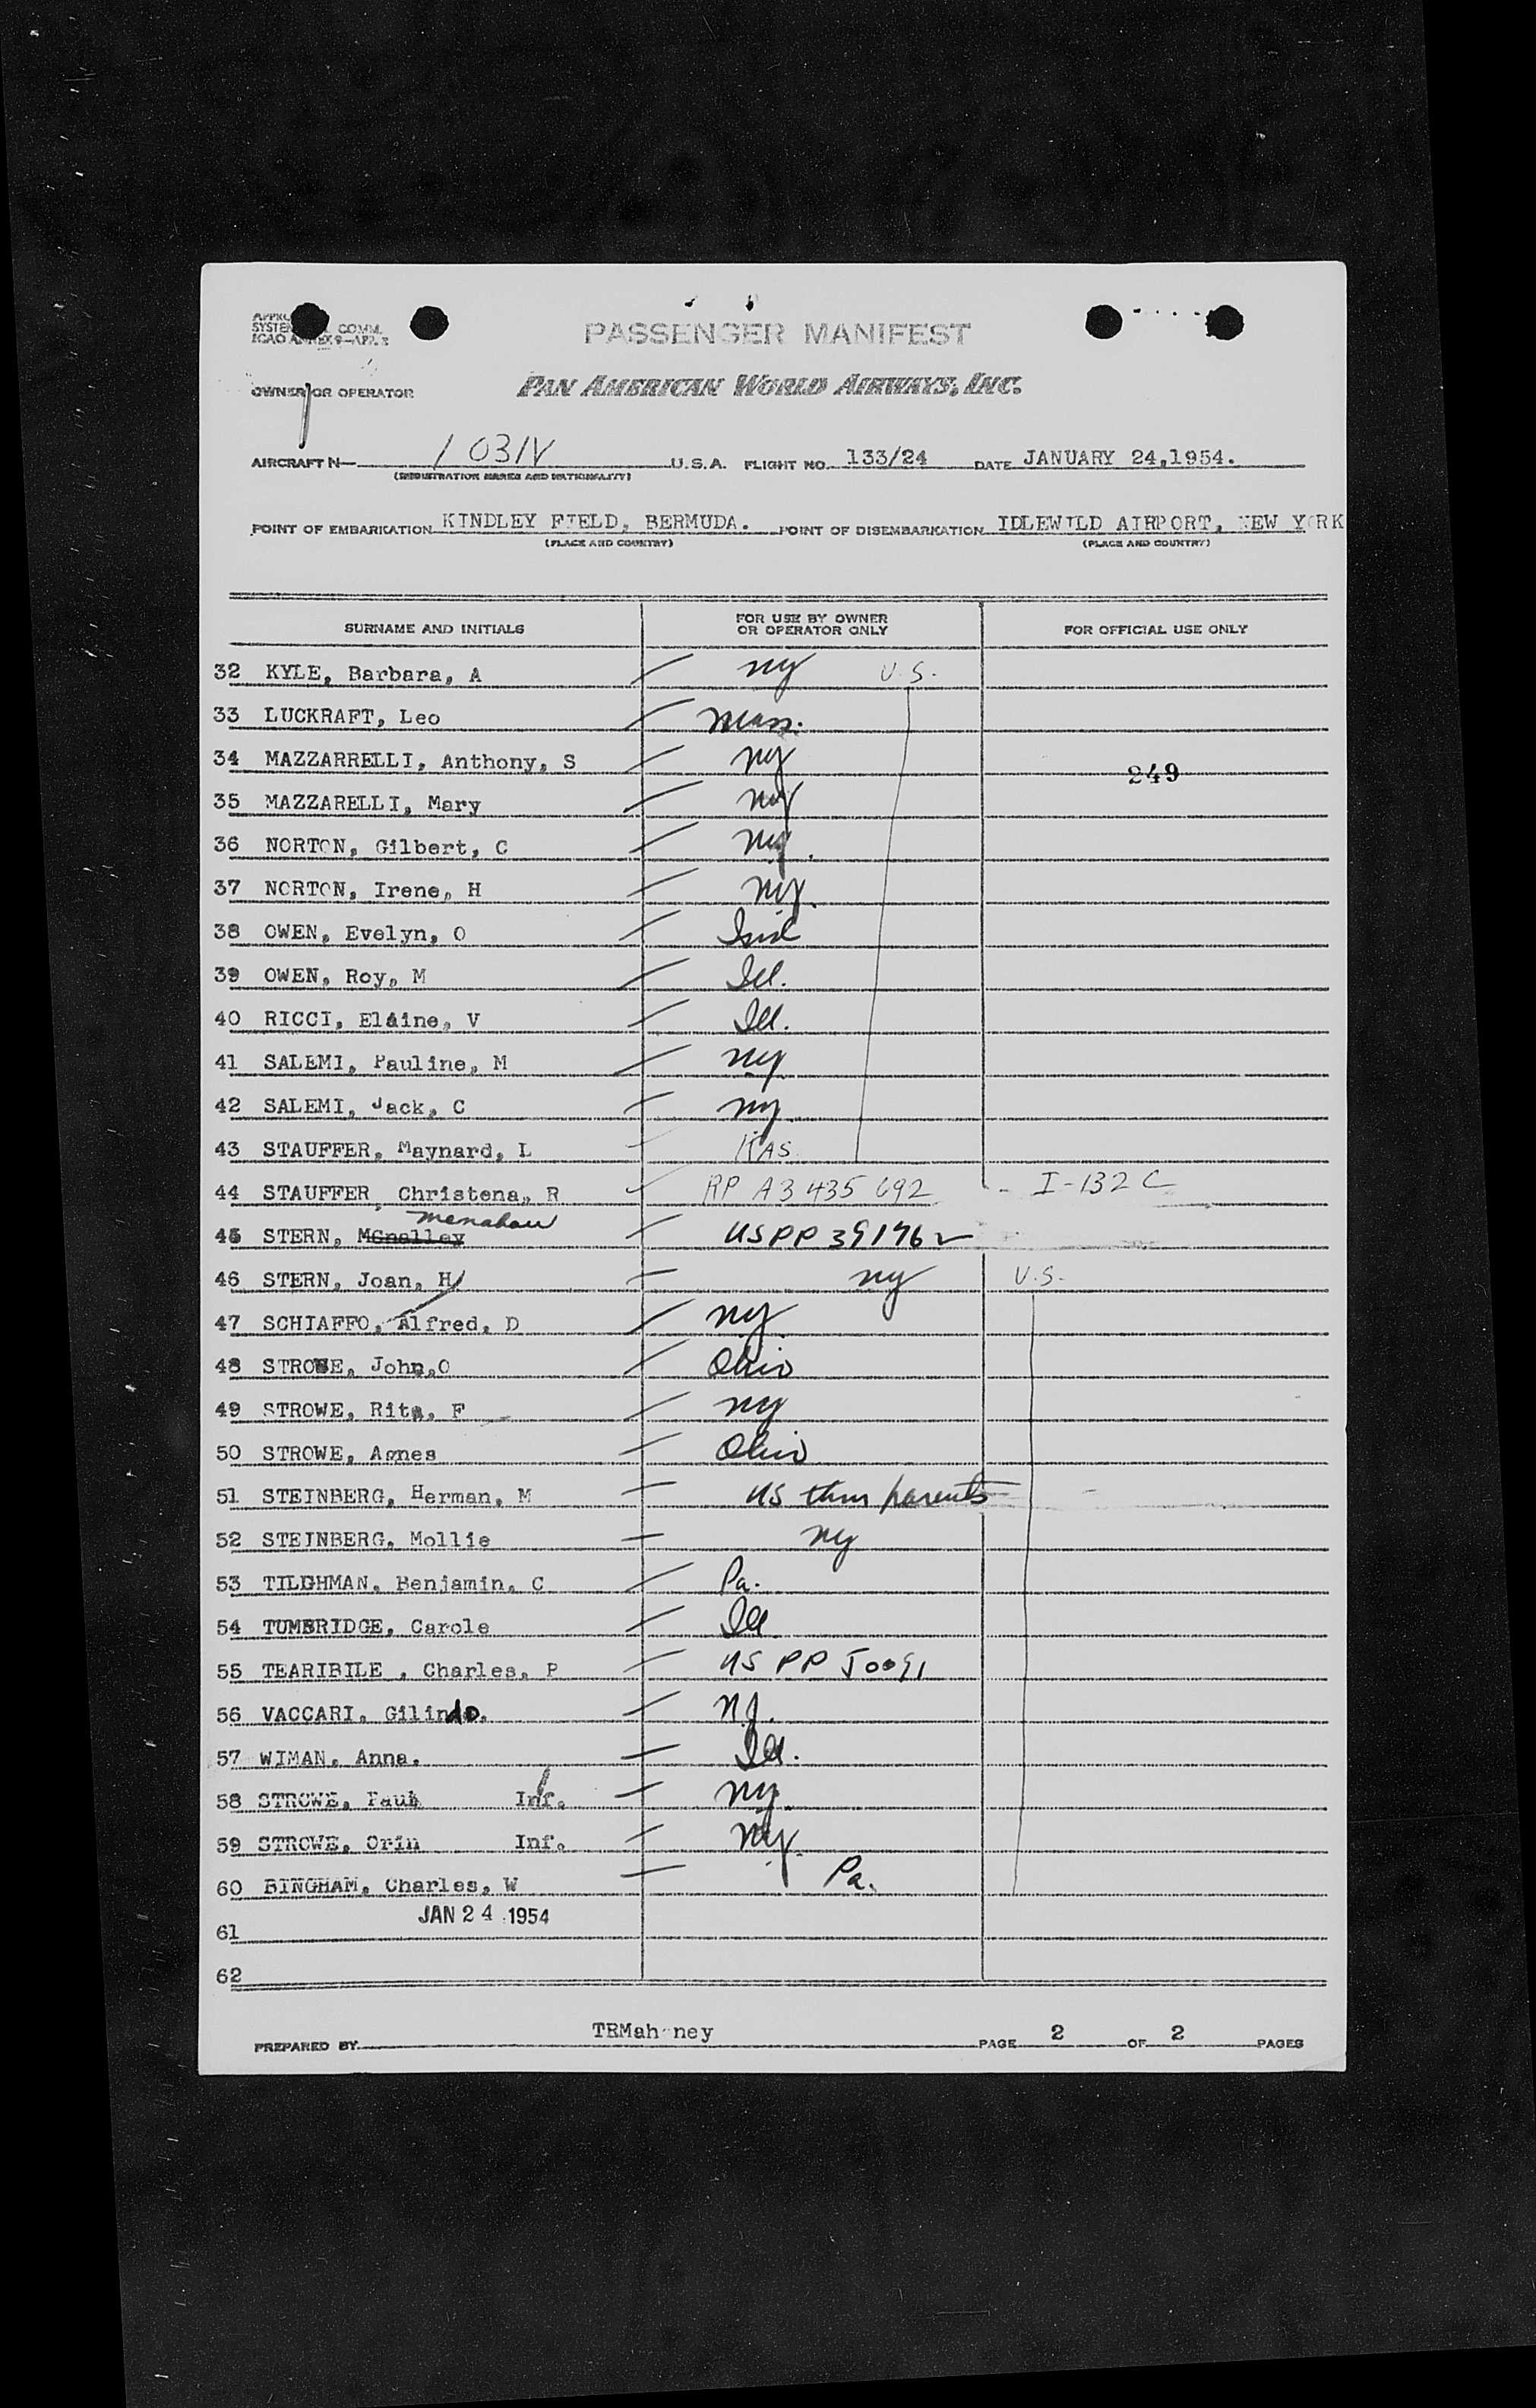 SYSTEM COMM.
ICAO ANNEX 9—APP. 3
PASSENGER MANIFEST
OWNER OR OPERATOR PAN AMERICAN WORLD AIRWAYS, INC.
AIRCRAFT N— 1031V U.S.A. FLIGHT NO. 133/24 DATE JANUARY 24,1954.
(REGISTRATION MARKS AND NATIONALITY)
POINT OF EMBARKATION KINDLEY FIELD, BERMUDA. POINT OF DISEMBARKATION IDLEWILD AIRPORT, NEW YORK
(PLACE AND COUNTRY) (PLACE AND COUNTRY)
SURNAME AND INITIALS FOR USE BY OWNER OR OPERATOR ONLY FOR OFFICIAL USE ONLY
32 KYLE, Barbara, A ny U.S.
33 LUCKRAFT, Leo Mass.
34 MAZZARRELLI, Anthony, S ny
249
35 MAZZARELLI, Mary ny
36 NORTON, Gilbert, C ny.
37 NORTON, Irene, H ny.
38 OWEN, Evelyn, O Ind
39 OWEN, Roy, M Ill.
40 RICCI, Elaine, V Ill.
41 SALEMI, Pauline, M ny
42 SALEMI, Jack, C ny
43 STAUFFER, Maynard, L KAS
44 STAUFFER, Christena, R RP A3 435 692 - I-132 C
45 STERN, M USPP 39176
46 STERN, Joan, H ny U.S.
47 SCHIAFFO, Alfred, D ny
48 STROWE, John,O Ohio
49 STROWE, Rita, F ny
50 STROWE, Agnes Ohio
51 STEINBERG, Herman, M US thru parents
52 STEINBERG, Mollie ny
53 TILGHMAN, Benjamin, C Pa.
54 TUMBRIDGE, Carole Ill
55 TEARIBILE , Charles, P US PP J0091
56 VACCARI, Gilindo. NJ.
57 WIMAN, Anna. Ill.
58 STROWE, Paul Inf. ny.
59 STROWE, Orin Inf. ny.
60 BINGHAM, Charles, W Pa.
JAN 24 1954
61
62
PREPARED BY TRMahoney PAGE 2 OF 2 PAGES